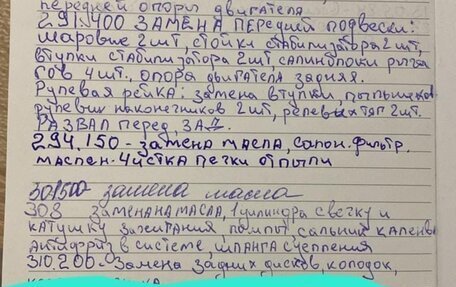 передней опоры двигателя
291.400 ЗАМЕНА ПЕРЕДНЕЙ ПОДВЕСКИ:
шаровые 2шт, стойки стабилизатора 2шт,
втулки стабилизатора 2шт, салинблоки рыча
гов 4шт., опора двигателя задняя.
Рулевая рейка: замена втулки, пыльников
рулевых наконечников 2шт, релевых тяг 2шт.
РАЗВАЛ перед, зад.
294.150 - замена масла, салон. фильтр.
маслен. Чистка печки от пыли
301500 - замена масла
308 замена масла, 1 цилиндра свечку и
катушку зажигания помпы, сальник
антифриз в системе шланга сцепления
310.200 - Замена задних дисков, колодок,